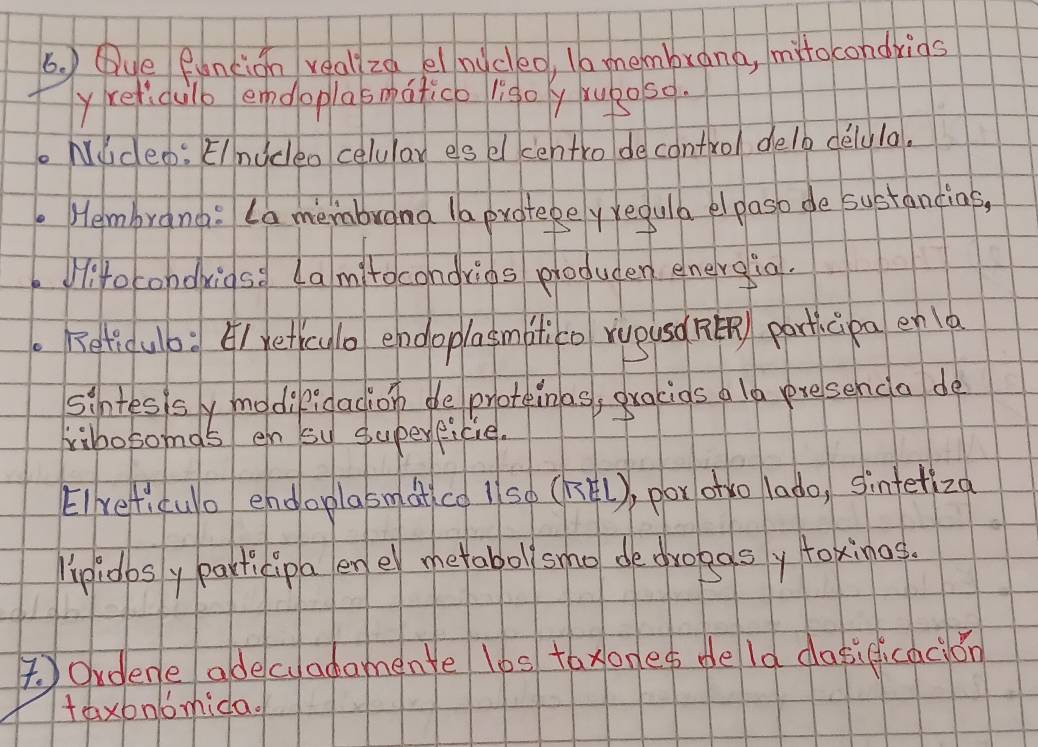 6.) Que función realiza el núcleo, la membrana, mitocondrias
y reticulo emdoplasmático liso y rugoso.
• Núcleo: El núcleo celular es el centro de control de la célula.
• Membrana: La membrana la protege y regula el paso de sustancias,
• Mitocondrias: La mitocondrias producen energia.
• Reticulo: El reticulo endoplasmático ruguso (RER) participa en la
síntesis y modificación de proteinas, gracias a la presencia de
ribosomas en su superficie.
El reticulo endoplasmático liso (REL), por otro lado, sintetiza
lipidos y participa en el metabolismo de drogas y toxinas.
7.) Ordene adecuadamente los taxones de la clasificación
taxonómica.